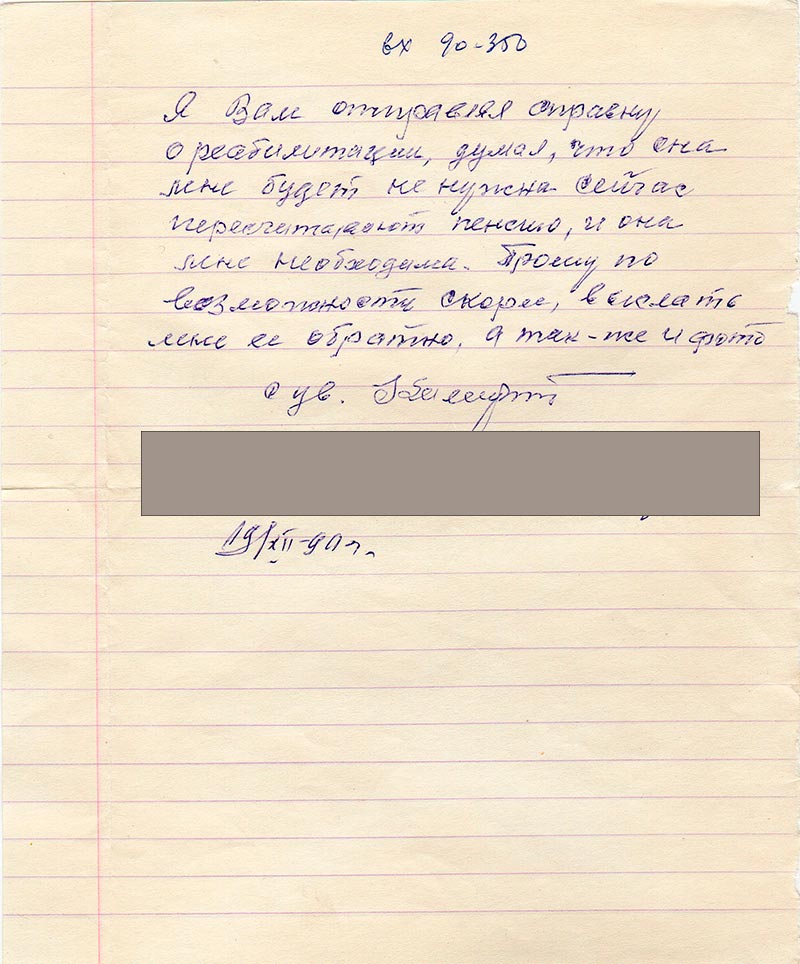 вх 90-350
Я Вам отправлял справку
о реабилитации, думал, что она
мне будет не нужна сейчас
пересчитывают пенсию, и она
мне необходима. Прошу по
возможности скорее, выслать
мне ее обратно, а так-же и фото
с ув.
19/XII-90 г.